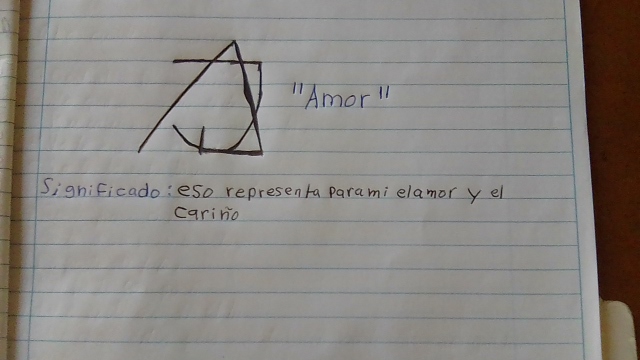 "Amor"
Significado: eso representa para mi el amor y el
cariño